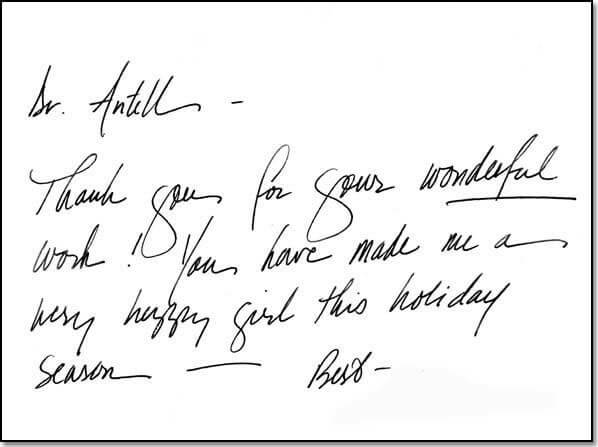 Dr. Antell -
Thank you for your wonderful
work! You have made me a
very happy girl this holiday
season — Best -